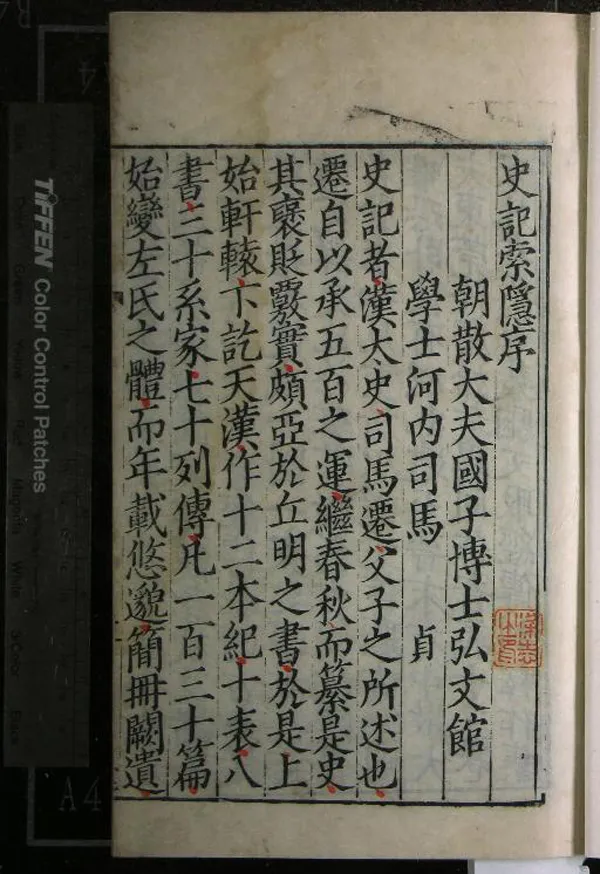 史記索隱序
朝散大夫國子博士弘文館
學士河内司馬 貞
史記者漢太史司馬遷父子之所述也
遷自以承五百之運繼春秋而纂是史
其襃貶覈實頗亞於丘明之書於是上
始軒轅下訖天漢作十二本紀十表八
書三十系家七十列傳凡一百三十篇
始變左氏之體而年載悠邈簡冊闕遺
TIFFEN Color Control Patches
A4